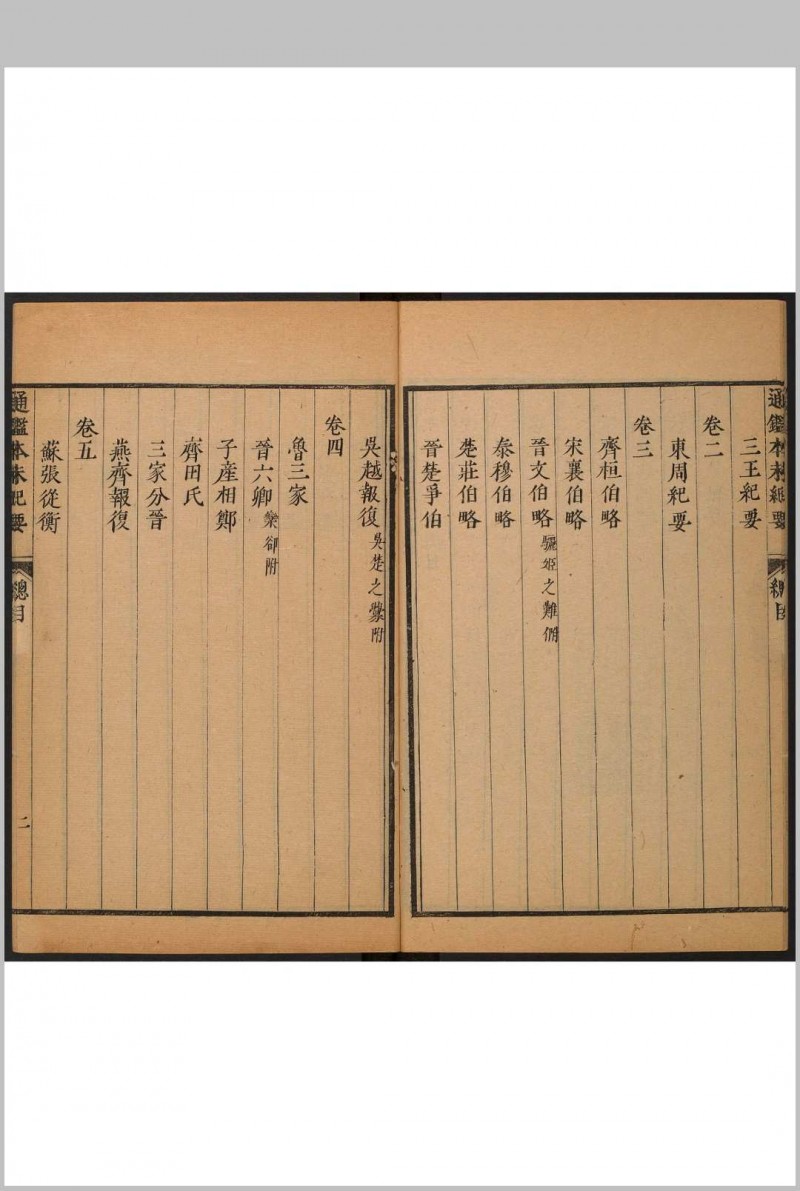 通鑑本末紀要
總目
三王紀要
卷二
東周紀要
卷三
齊桓伯略
宋襄伯略
晉文伯略 驪姬之難備
秦穆伯略
楚莊伯略
晉楚爭伯
吳越報復 吳楚之釁附
卷四
魯三家
晉六卿 欒郤附
子產相鄭
齊田氏
三家分晉
燕齊報復
卷五
蘇張從衡
通鑑本末紀要
總目
二